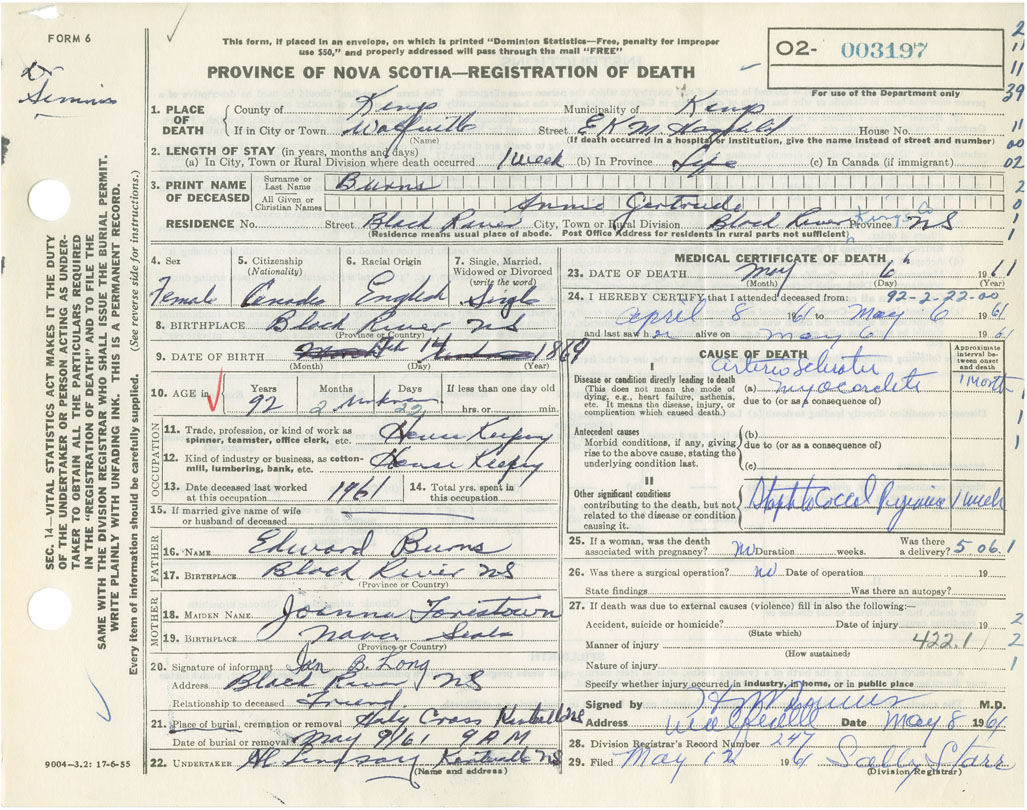 FORM 6
Dr
This form, if placed in an envelope, on which is printed "Dominion Statistics—Free, penalty for improper
use $50," and properly addressed will pass through the mail "FREE"
PROVINCE OF NOVA SCOTIA—REGISTRATION OF DEATH
02- 003197
For use of the Department only
2
11
11
39
11
00
02
1. PLACE OF DEATH
County of Kings Municipality of Kings
If in City or Town Wolfville Street E K M Hospital House No.
(Name) (If death occurred in a hospital or institution, give the name instead of street and number)
2. LENGTH OF STAY (in years, months and days)
(a) In City, Town or Rural Division where death occurred 1 week (b) In Province Life (c) In Canada (if immigrant)
3. PRINT NAME OF DECEASED
Surname or Last Name Burns
All Given or Christian Names Annie Gertrude
RESIDENCE No. Street Black River City, Town or Rural Division Black River Kings Co Province NS
(Residence means usual place of abode. Post Office Address for residents in rural parts not sufficient)
4. Sex Female
5. Citizenship (Nationality) Canada
6. Racial Origin English
7. Single, Married, Widowed or Divorced (write the word) Single
8. BIRTHPLACE Black River NS
(Province or Country)
9. DATE OF BIRTH Feb 14 1869
(Month) (Day) (Year)
10. AGE in Years 92 Months 2 Days 22 If less than one day old hrs. or min.
OCCUPATION
11. Trade, profession, or kind of work as spinner, teamster, office clerk, etc. House Keeping
12. Kind of industry or business, as cotton-mill, lumbering, bank, etc. House Keeping
13. Date deceased last worked at this occupation 1961
14. Total yrs. spent in this occupation
15. If married give name of wife or husband of deceased
FATHER
16. NAME Edward Burns
17. BIRTHPLACE Black River NS
(Province or Country)
MOTHER
18. MAIDEN NAME Joanna
19. BIRTHPLACE Nova Scotia
(Province or Country)
20. Signature of informant Ian B. Long
Address Black River NS
Relationship to deceased Friend
21. Place of burial, cremation or removal Holy Cross Kentville NS
Date of burial or removal May 9/61 9 AM
22. UNDERTAKER Al Lindsay Kentville NS
(Name and address)
MEDICAL CERTIFICATE OF DEATH
23. DATE OF DEATH May 6th 1961
(Month) (Day) (Year)
24. I HEREBY CERTIFY that I attended deceased from: 92-2-22-00
April 8 1961 to May 6 1961
and last saw h er alive on May 6 1961
CAUSE OF DEATH
Approximate interval between onset and death
I
Disease or condition directly leading to death
(This does not mean the mode of dying, e.g., heart failure, asthenia, etc. It means the disease, injury, or complication which caused death.)
(a) myocarditis 1 Month
due to (or as a consequence of)
Antecedent causes
Morbid conditions, if any, giving rise to the above cause, stating the underlying condition last.
(b)
due to (or as a consequence of)
(c)
II
Other significant conditions
contributing to the death, but not related to the disease or condition causing it.
1 week
25. If a woman, was the death associated with pregnancy? no Duration weeks. Was there a delivery? 5 06.1
26. Was there a surgical operation? no Date of operation 19
State findings Was there an autopsy?
27. If death was due to external causes (violence) fill in also the following:—
Accident, suicide or homicide? Date of injury 19
(State which)
Manner of injury 422.1
(How sustained)
Nature of injury
Specify whether injury occurred in industry, in home, or in public place
Signed by M.D.
Address Wolfville Date May 8 1961
28. Division Registrar's Record Number 247
29. Filed May 12 1961 Sally Starr
(Division Registrar)
SEC. 14—VITAL STATISTICS ACT MAKES IT THE DUTY
OF THE UNDERTAKER OR PERSON ACTING AS UNDER-
TAKER TO OBTAIN ALL THE PARTICULARS REQUIRED
IN THE "REGISTRATION OF DEATH" AND TO FILE THE
SAME WITH THE DIVISION REGISTRAR WHO SHALL ISSUE THE BURIAL PERMIT.
WRITE PLAINLY WITH UNFADING INK. THIS IS A PERMANENT RECORD.
Every item of information should be carefully supplied. (See reverse side for instructions.)
9004—3.2: 17-6-55